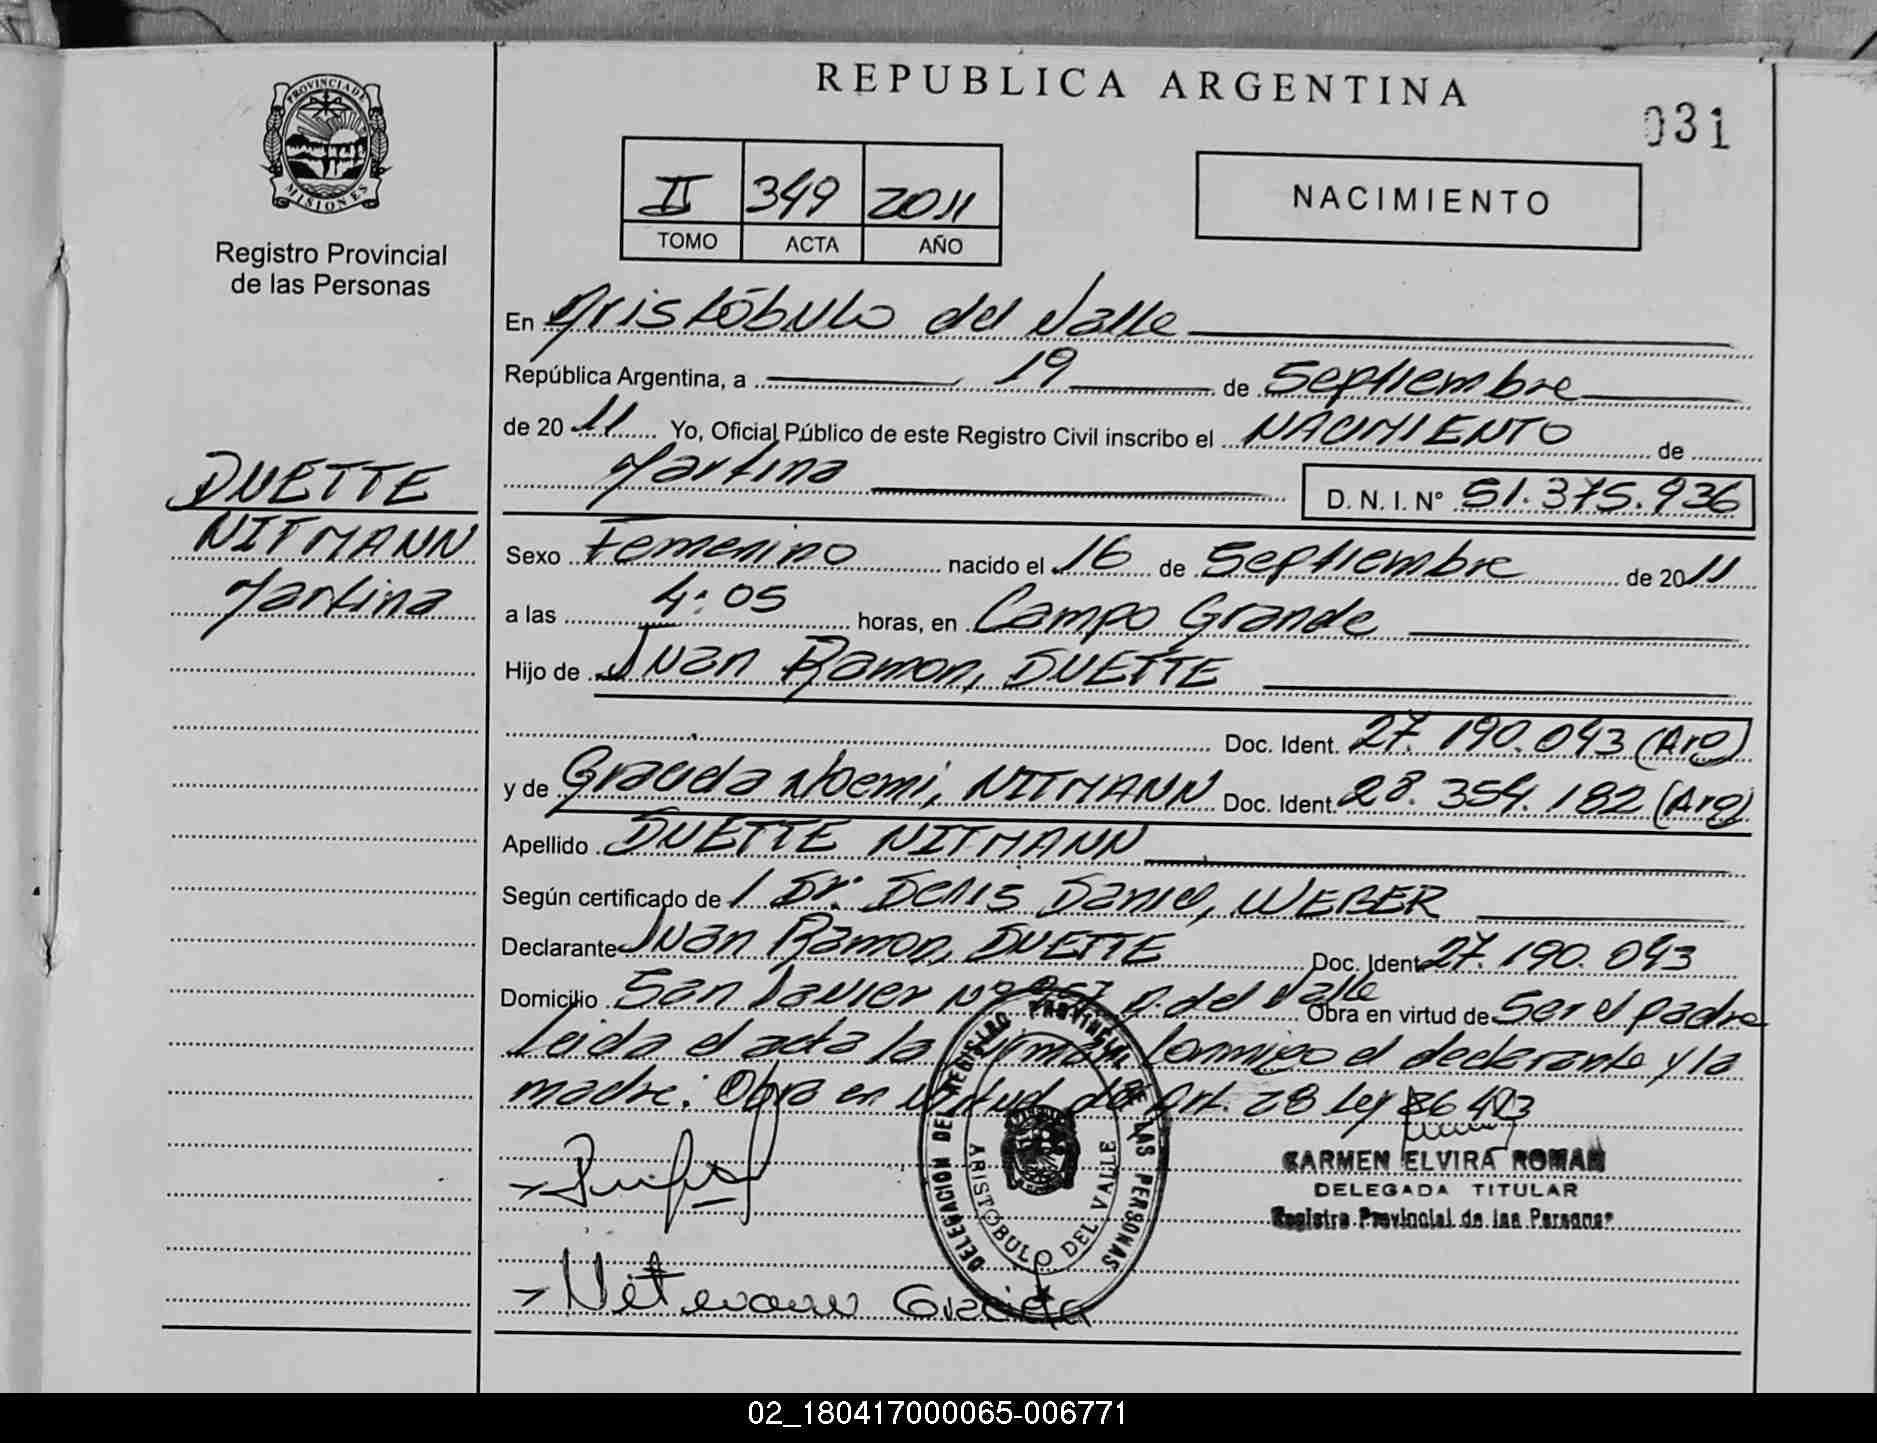 REPUBLICA ARGENTINA
031
PROVINCIA DE MISIONES
Registro Provincial
de las Personas
II 349 2011
TOMO ACTA AÑO
NACIMIENTO
En Aristóbulo del Valle
República Argentina, a 19 de Septiembre
de 2011 Yo, Oficial Público de este Registro Civil inscribo el NACIMIENTO de
Martina D. N. I. Nº 51.375.936
DUETTE
NITMANN
Martina
Sexo Femenino nacido el 16 de Septiembre de 2011
a las 4:05 horas, en Campo Grande
Hijo de Juan Ramon, DUETTE
Doc. Ident. 27.190.093 (Arg)
y de Graciela Noemi, NITMANN Doc. Ident. 28.354.182 (Arg)
Apellido DUETTE NITMANN
Según certificado de / Dr. Denis Daniel, WEBER
Declarante Juan Ramon, DUETTE Doc. Ident 27.190.093
Domicilio San Javier Nº A. del Valle Obra en virtud de Ser el padre
Leida el acta la firman conmigo el declarante y la
madre. Obra en virtud del Art. 28 Ley 26413
DELEGACION DEL REGISTRO PROVINCIAL DE LAS PERSONAS
ARISTÓBULO DEL VALLE
CARMEN ELVIRA ROMAN
DELEGADA TITULAR
Registro Provincial de las Personas
Graciela
02_180417000065-006771